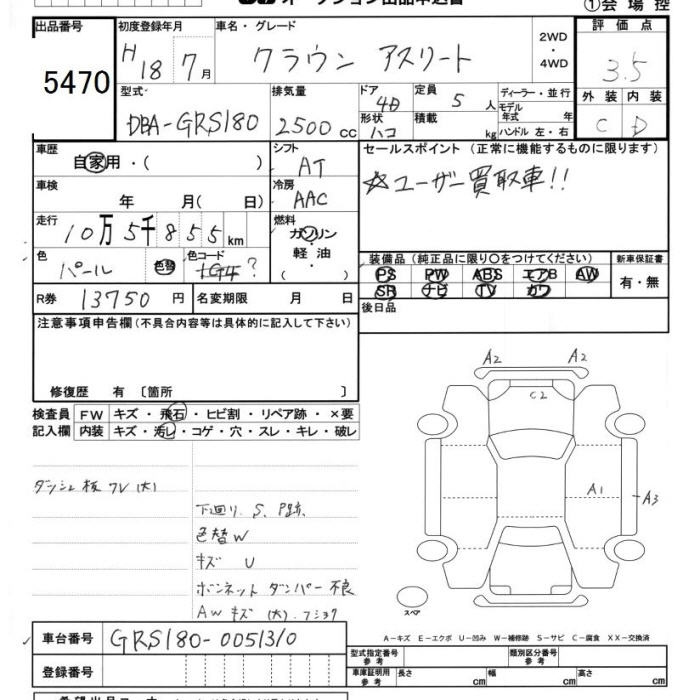 オークション出品申込書
①会場控
出品番号
5470
初度登録年月
H 18 7月
車名・グレード
クラウン アスリート
2WD
・
4WD
評価点
3.5
型式
DBA-GRS180
排気量
2500cc
ドア
4D
形状
ハコ
定員
5人
積載
kg
ディーラー・並行
モデル年式 年
ハンドル 左・右
外装 内装
C D
車歴
自家用・( )
シフト
AT
車検
年 月( 日)
冷房
AAC
走行
10万5千855km
燃料
ガソリン
・軽油・
( )
色
パール
色替
色コード
1G4?
R券 13750円
名変期限 月 日
セールスポイント(正常に機能するものに限ります)
☆ユーザー買取車!!
装備品(純正品に限り○をつけてください)
PS PW ABS エアB AW
SR ナビ TV カワ
新車保証書
有・無
後日品
注意事項申告欄(不具合内容等は具体的に記入して下さい)
修復歴 有 〔箇所 〕
検査員
記入欄
FW キズ・飛石・ヒビ割・リペア跡・×要
内装 キズ・汚レ・コゲ・穴・スレ・キレ・破レ
ダッシュ板 ワレ(大)
下廻り S、P跡
色替W
キズ U
ボンネット ダンパー 不良
AW キズ (大)
A2 A2
C2
A1 A3
スペア
A-キズ E-エクボ U-凹み W-補修跡 S-サビ C-腐食 XX-交換済
車台番号 GRS180-0051310
登録番号
型式指定番号
参考
類別区分番号
参考
車庫証明用
参考
長さ cm 幅 cm 高さ cm